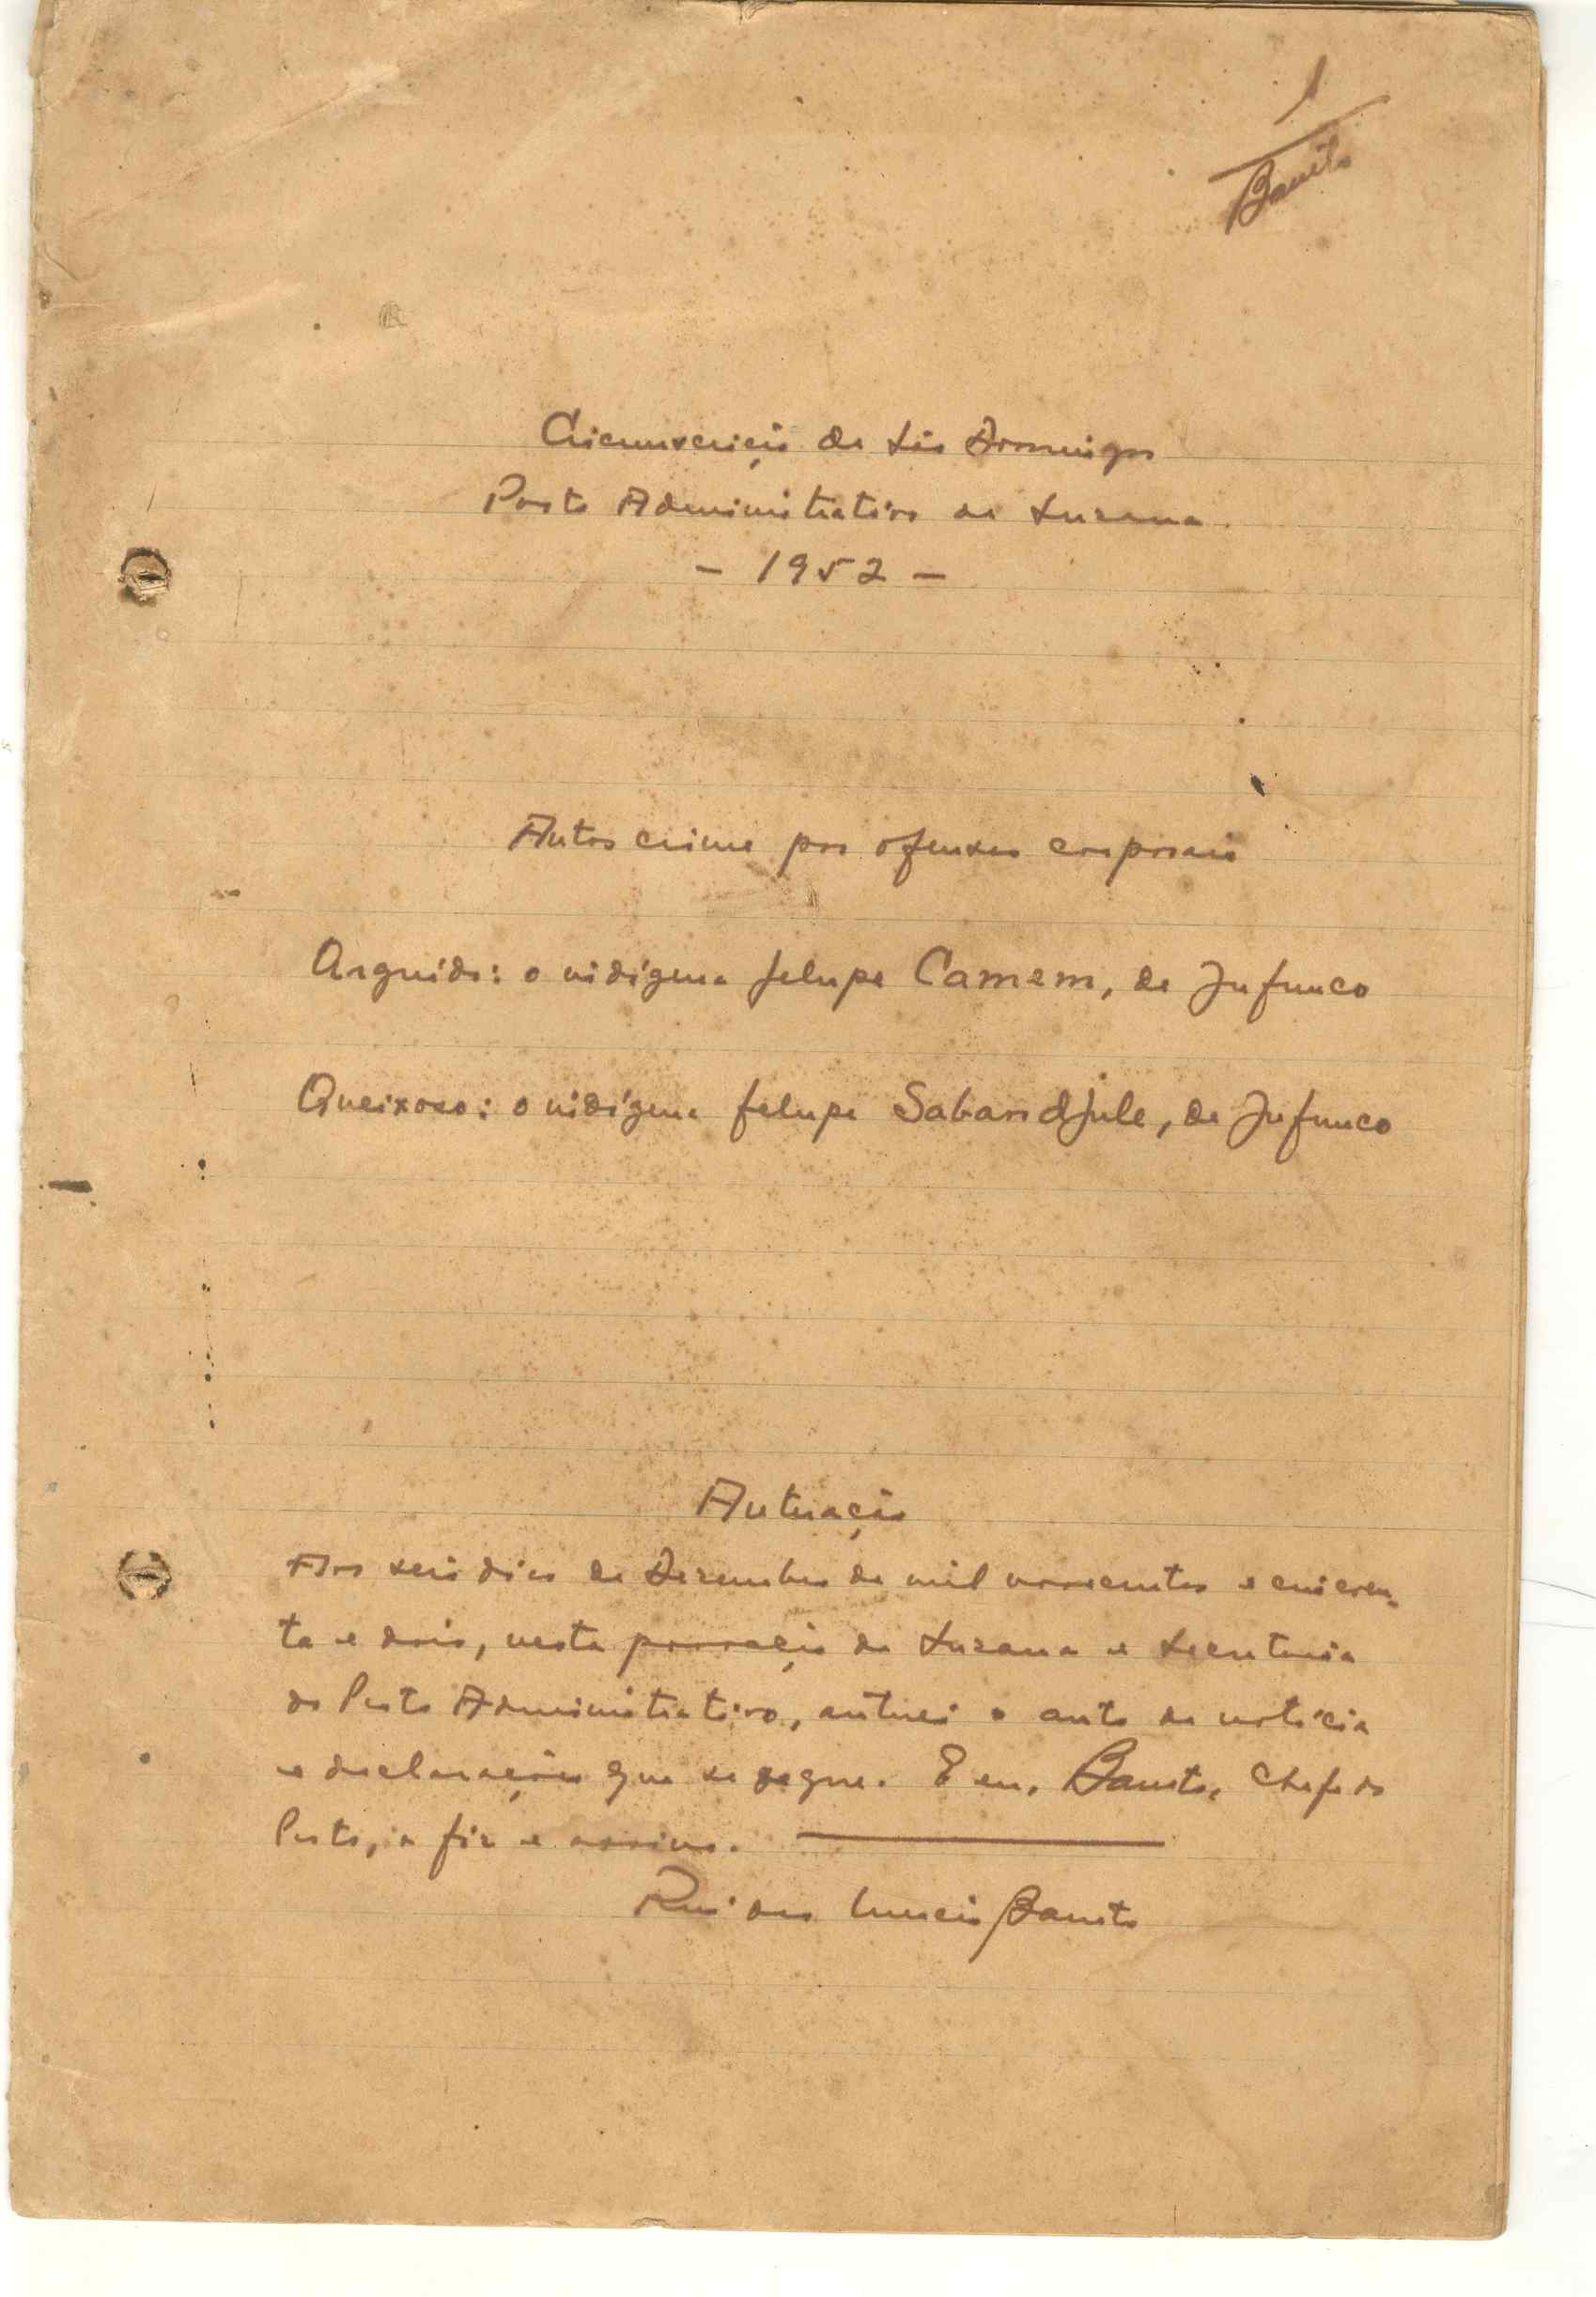 1
Circunscrição de São Domingos
Posto Administrativo de Suzana.
- 1952 -
Autos crime por ofensas corporais
Arguido: o indígena felupe Camem, de Jufunco
Queixoso: o indígena felupe Sabandjule, de Jufunco
Autuação
Aos seis dias de Dezembro de mil novecentos e cincoen-
ta e dois, nesta povoação de Suzana e Secretaria
do Posto Administrativo, autuei o auto de notícia
e declarações que se segue. E eu, Chefe do
Posto, o fiz e assino.
Rui